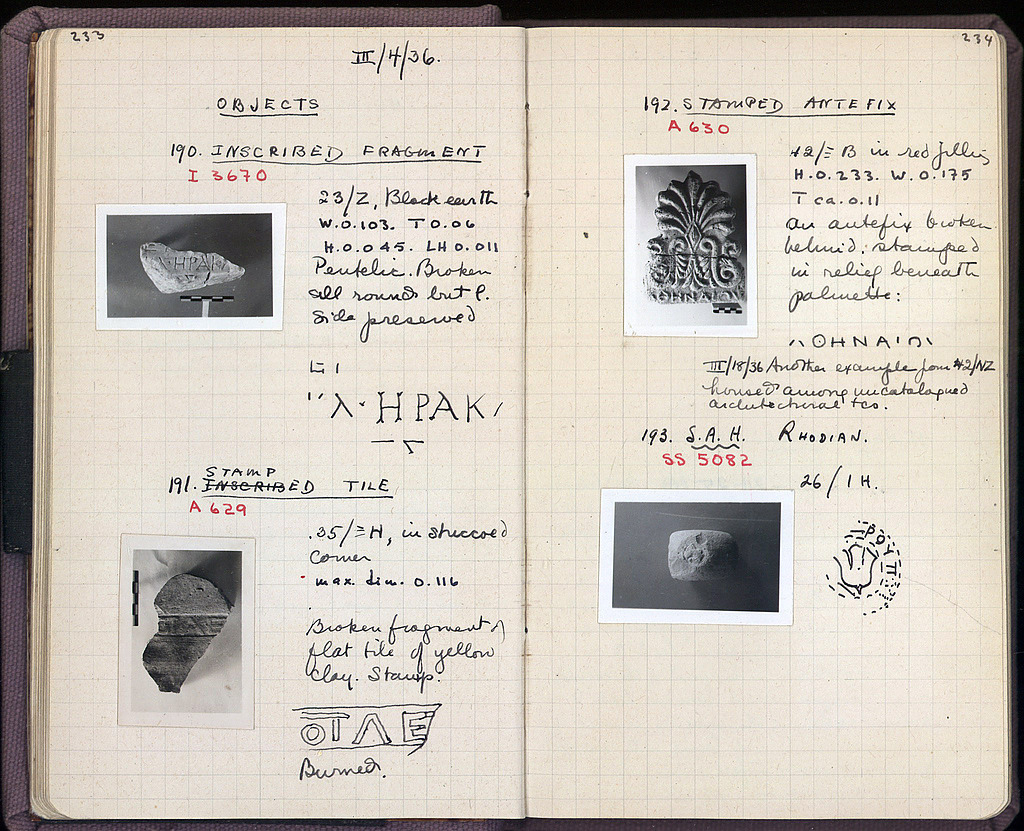 233
III/4/36.
OBJECTS
190. INSCRIBED FRAGMENT
I 3670
23/Z, Black earth
W.0.103. T 0.06
H.0.045. LH 0.011
Pentelic. Broken
all round but l.
side preserved
Λ · ΗΡΑΚ
191. INSCRIBED STAMP TILE
A 629
35/Ξ H, in stuccoed
corner
max. dim. 0.116
Broken fragment of
flat tile of yellow
clay. Stamp.
ΟΤΛΕ
Burned.
234
192. STAMPED ANTEFIX
A 630
42/Ξ B in red filling
H.0.233. W.0.175
T ca. 0.11
an antefix broken
behind; stamped
in relief beneath
palmette:
ΘΗΝΑΙΟ
III/18/36 Another example from 42/NZ
housed among uncatalogued
architectural tcs.
193. S.A.H. RHODIAN.
SS 5082
26/ΙΗ.